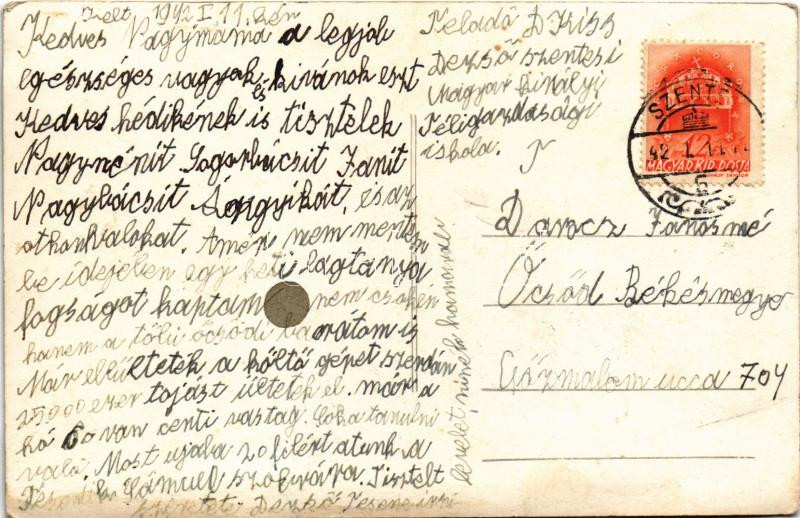 Kelt 1942 I 11. kén
Kedves Nagymama a legjob
egészséges vagyok és kivánok eszt
Kedves hédikének is tisztelek
Nagynénit Sogorbácsit Janit
Nagybácsit Sárgyikát, és az
othonvalokat. Amér nem mentem
be idejében egy heti lagtanya
fogságot kaptam nem csak én
hanem a töbi öcsödi barátom is
Már elültetek a költő gépet szerdán
25000 ezer tojást ültetek el. már a
hó 60 van centi vastag. Soka tanulni
való. Most ujaba 20 filért atunk a
Sámuel szobrára. Tisztelt
szeretete: Dezső
levelet hamarabb.
Feladó D Kiss
Dezső szentesi
Magyar királyi
Téligazdasági
iskola.
SZENTES
42. I. 11.
12
MAGYAR KIR. POSTA
Darocz Janosné
Öcsöd Békésmegye
Gőzmalom ucca 704